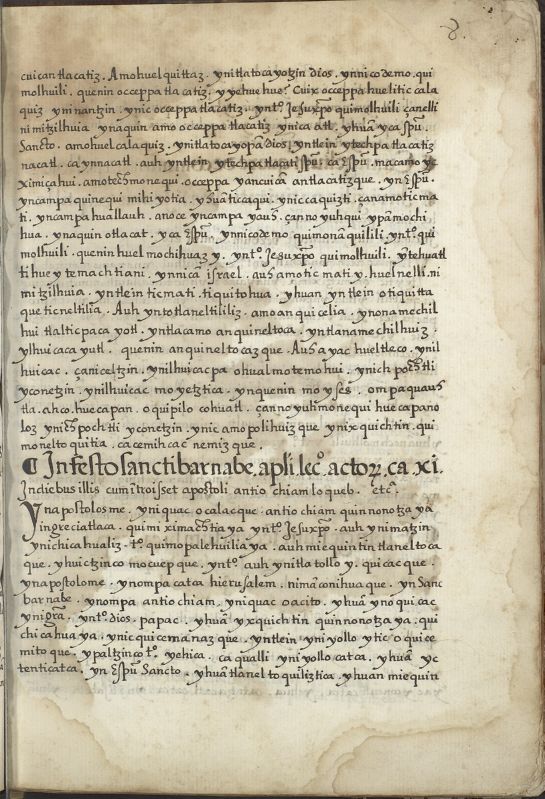 8.
cuicantlacatiz. Amohuel quittaz. ynitlatocayotzin dios. ynnicodemo. qui
molhuili. quenin occeppa tlacatiz. yyehue hue? Cuix occeppa huelitic cala
quiz ymnantzin. ynic occeppa tlacatiz. yntº. Jesuxp̃o quimolhuili çanelli
nimitzilhuia ynaquin amo occeppa tlacatiz ynica atl. yhuã yca sp̃u.
Sancto. amohuel calaquiz. ynitlatocayopã dios. yntlein ytechpa tlacatiz
nacatl. ca ynnacatl. auh yntlein ytechpa tlacati sp̃u ca esp̃u. macamo yc
ximiçahui. amotech monequi. occeppa yancuicã antlacatizque. yn esp̃u.
yncampa quinequi mihiyotia. yhuã ticcaqui. ynic caquizti. çanamoticma
ti. yncampa huallauh. anoce yncampa yauh. çanno yuhqui ypã mochi
hua. ynaquin otlacat. yca esp̃u. ynnicodemo quimonãquilili. yntº. qui
molhuili. quenin huel mochihuaz y. yntº. Jesuxp̃o quimolhuili. ytehuatl
titlueytemachtiani. ynnicã israel. auh amo ticmati y. huelnelli. ni
mitzilhuia. yntlein ticmati. tiquitohua. yhuan yntlein otiquitta
que ticneltilia. Auh yntotlaneltililiz. amo anquicelia. ynonamechil
hui tlalticpaca yotl. yntlacamo anquineltoca. yntlanamechilhuiz.
ylhuicaca yutl. quenin anquineltocazque. Auh ayac hueltleco. ynil
huicac. çan iceltzin. ynilhuicacpa ohualmotemohui. ynichpochtli
yconetzin. ynilhuicac moyetztica. ynquenin moyses. ompa quauh
tla. ahco. huecapan. oquipilo cohuatl. çanno yuh monequi huecapano
loz ynichpochtli yconetzin. ynic amo polihuiz que ynixquichtin. qui
moneltoquitia. ca cemihcac nemizque.
¶ In festo sancti barnabe apl̃i. lecº. actorꝝ. ca. xi.
In diebus illis cum ĩtroisset apostoli antiochiam loqueb. etc̃.
Ynapostolosme. yniquac ocalacque. antiochiam quinnonotza ya
yn greciatlaca. quimiximachtiaya yntº. Jesuxp̃o. auh ynimatzin
ynichicahualiz. tº. quimopalehuiliaya. auh miequintin tlaneltoca
que. yhuictzinco mocuepque. yntº. auh ynitlatollo y. quicacque.
ynapostolome. ynompa catca hierusalem. nimã conihuaque. yn Sanc
barnabe. ynompa antiochiam. yniquac oacito. yhuã ynoquicac
ynigr̃a. yntº. dios. papac. yhuã yxquichtin quinnonotzaya. qui
chicahuaya. ynic quicemanazque. yntlein yniyollo ytic oquice
mitoque. ypaltzinco tº. yehica. ca qualli yniyollo catca. yhuã yc
tenticatca. yn esp̃u Sancto. yhuã tlaneltoquiliztica. yhuan miequin